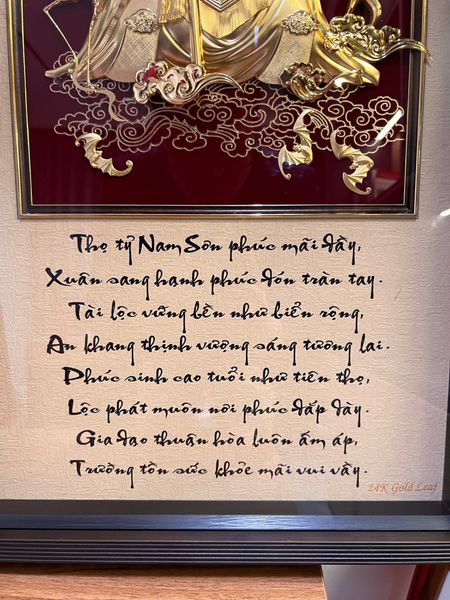 Thọ tỷ Nam Sơn phúc mãi đầy,
Xuân sang hạnh phúc đón tràn tay.
Tài lộc vững bền như biển rộng,
An khang thịnh vượng sáng tương lai.
Phúc sinh cao tuổi như tiên thọ,
Lộc phát muôn nơi phúc đắp dày.
Gia đạo thuận hòa luôn ấm áp,
Trường tồn sức khỏe mãi vui vầy.
24K Gold Leaf